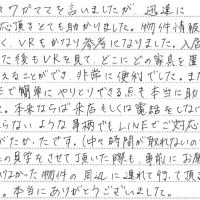 ワガママを言いましたが、迅速に
応頂きとても助かりました。物件情報
く、VRもかなり参考になりました。入居
た後もVRを見て、どこにどの家具を置
えることができ、非常に便利でした。また
Eで簡単にやりとりできる点も本当に助
。本来ならば来店もしくは電話をしなけ
らないような事柄でもLINEでご対応
がたかったです。(中々時間が取れないの
の見学をさせて頂いた際も、事前にお願
いなかった物件の周辺に連れて行って頂き
。本当にありがとうございました。